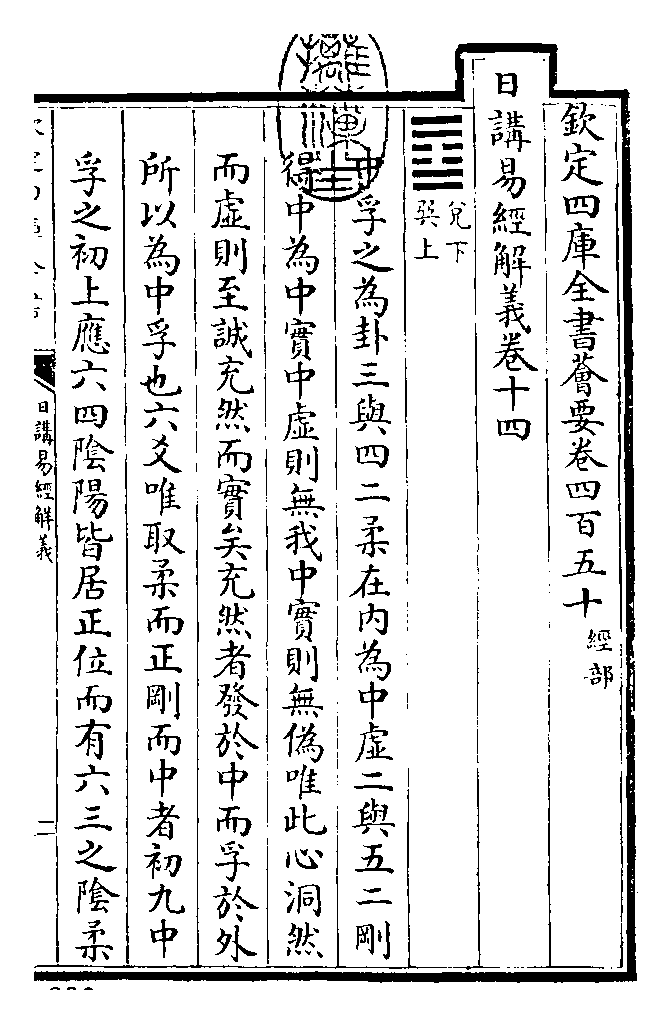 欽定四庫全書薈要卷四百五十 經部
日講易經解義卷十四
兌下
巽上
中孚之為卦三與四二柔在内為中虛二與五二剛
得中為中實中虛則無我中實則無偽唯此心洞然
而虛則至誠充然而實矣充然者發於中而孚於外
所以為中孚也六爻唯取柔而正剛而中者初九中
孚之初上應六四陰陽皆居正位而有六三之陰柔
日講易經解義